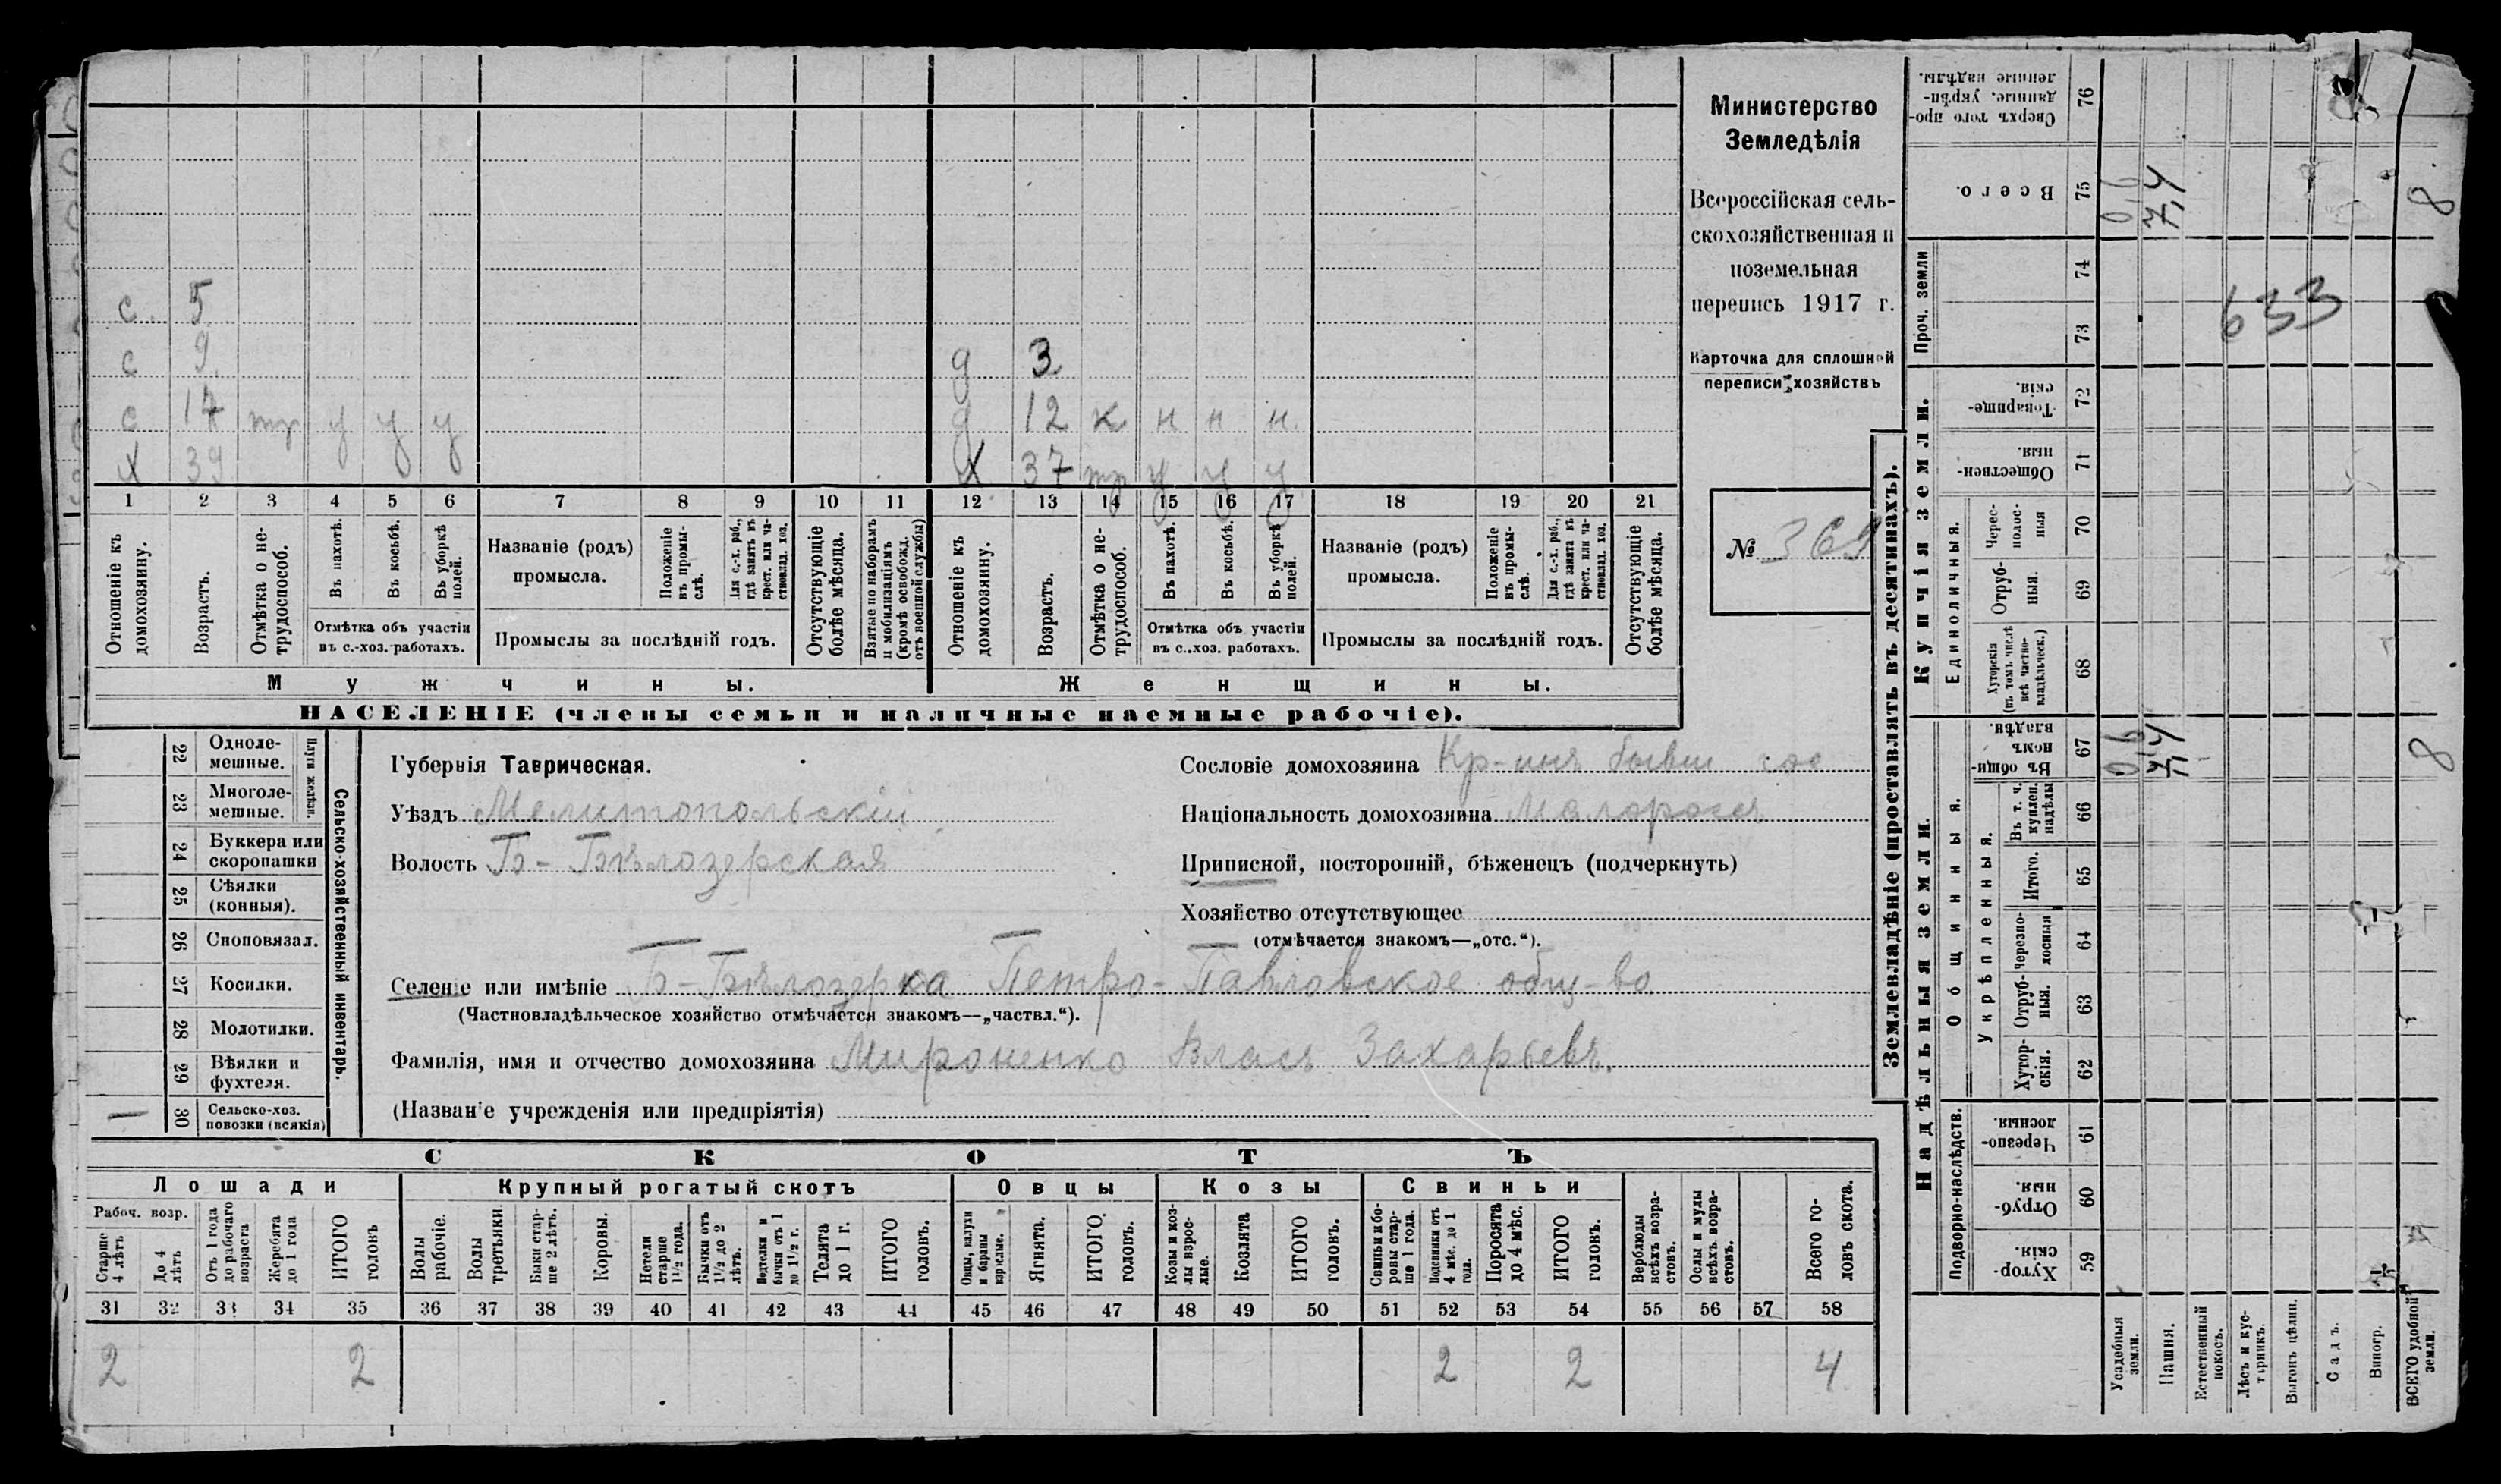 Министерство
Земледѣлія
Всероссійская сель-
скохозяйственная и
поземельная
перепись 1917 г.
Карточка для сплошной
переписи хозяйствъ
№ 369
с. 5
с 9
с 14 тр у у у
х 39
д 3
д 12 к н н н
х 37 тр у у у
1 2 3 4 5 6 7 8 9 10 11 12 13 14 15 16 17 18 19 20 21
Отношеніе къ домохозяину.
Возрастъ.
Отмѣтка о не-трудоспособ.
Въ пахотѣ.
Въ косьбѣ.
Въ уборкѣ полей.
Отмѣтка объ участіи
въ с.-хоз. работахъ.
Названіе (родъ)
промысла.
Положеніе въ промы-слѣ.
Для с.-х. раб., гдѣ занятъ въ крест. или ча-стновлад. хоз.
Промыслы за послѣдній годъ.
Отсутствующіе болѣе мѣсяца.
Взятые по наборамъ и мобилизаціямъ (кромѣ освобожд. отъ военной службы)
Отношеніе къ домохозяину.
Возрастъ.
Отмѣтка о не-трудоспособ.
Въ пахотѣ.
Въ косьбѣ.
Въ уборкѣ полей.
Отмѣтка объ участіи
въ с.-хоз. работахъ.
Названіе (родъ)
промысла.
Положеніе въ промы-слѣ.
Для с.-х. раб., гдѣ занята въ крест. или ча-стновлад. хоз.
Промыслы за послѣдній годъ.
Отсутствующіе болѣе мѣсяца.
Мужчины.
Женщины.
НАСЕЛЕНІЕ (члены семьи и наличные наемные рабочіе).
Сельско-хозяйственный инвентарь.
Плуги желѣзн.
22 Одноле-мешные.
23 Многоле-мешные.
24 Буккера или скоропашки
25 Сѣялки (конныя).
26 Сноповязал.
27 Косилки.
28 Молотилки.
29 Вѣялки и фухтеля.
30 Сельско-хоз. повозки (всякія)
Губернія Таврическая.
Уѣздъ Мелитопольскій
Волость Б-Бѣлозерская
Сословіе домохозяина Кр-инъ бывш гос
Національность домохозяина Малороссъ
Приписной, посторонній, бѣженецъ (подчеркнуть)
Хозяйство отсутствующее
(отмѣчается знакомъ—„отс.“).
Селеніе или имѣніе Б-Бѣлозерка Петро-Павловское общ-во
(Частновладѣльческое хозяйство отмѣчается знакомъ—„частвл.“).
Фамилія, имя и отчество домохозяина Мироненко Власъ Захарьевъ.
(Названіе учрежденія или предпріятія)
СКОТЪ
Лошади
Крупный рогатый скотъ
Овцы
Козы
Свиньи
Рабоч. возр.
Старше 4 лѣтъ
До 4 лѣтъ
Отъ 1 года до рабочаго возраста
Жеребята до 1 года
ИТОГО головъ
Волы рабочіе.
Волы третьяки.
Быки стар-ше 2 лѣтъ.
Коровы.
Нетели старше 1½ года.
Бычки отъ 1½ до 2 лѣтъ.
Подтелки и бычки отъ 1 до 1½ г.
Телята до 1 г.
ИТОГО головъ.
Овцы, валухи и бараны взрослые.
Ягнята.
ИТОГО головъ.
Козы и коз-лы взрос-лые.
Козлята
ИТОГО головъ.
Свиньи и бо-ровы стар-ше 1 года.
Подсвинки отъ 4 мѣс. до 1 года.
Поросята до 4 мѣс.
ИТОГО головъ.
Верблюды всѣхъ возра-стовъ.
Ослы и мулы всѣхъ возра-стовъ.
Всего го-ловъ скота.
31 32 33 34 35 36 37 38 39 40 41 42 43 44 45 46 47 48 49 50 51 52 53 54 55 56 57 58
2 2 2 2 4
Землевладѣніе (проставлять въ десятинахъ).
Надѣльныя земли.
Купчія земли.
Проч. земли
Подворно-наслѣдств.
Общинныя.
Укрѣпленныя.
Единоличныя.
76 Сверхъ того про-данные, укрѣп-ленные надѣлы.
75 Всего.
74
73
72 Товарище-скія.
71 Обществен-ныя.
70 Черес-полос-ныя
69 Отруб-ныя.
68 Хуторскія (въ томъ числѣ всѣ частно-владѣльческ.)
67 Въ общин-номъ владѣн.
66 Въ т. ч. куплен. надѣлы
65 Итого.
64 Черезпо-лосныя
63 Отруб-ныя.
62 Хутор-скія.
61 Черезпо-лосныя.
60 Отруб-ныя.
59 Хутор-скія.
Усадебныя земли.
Пашня.
Естественный покосъ.
Лѣсъ и кус-тарникъ.
Выгонъ цѣлин.
Садъ.
Виногр.
ВСЕГО удобной земли.
0,6 7,4 8
633
0,6 7,4 8